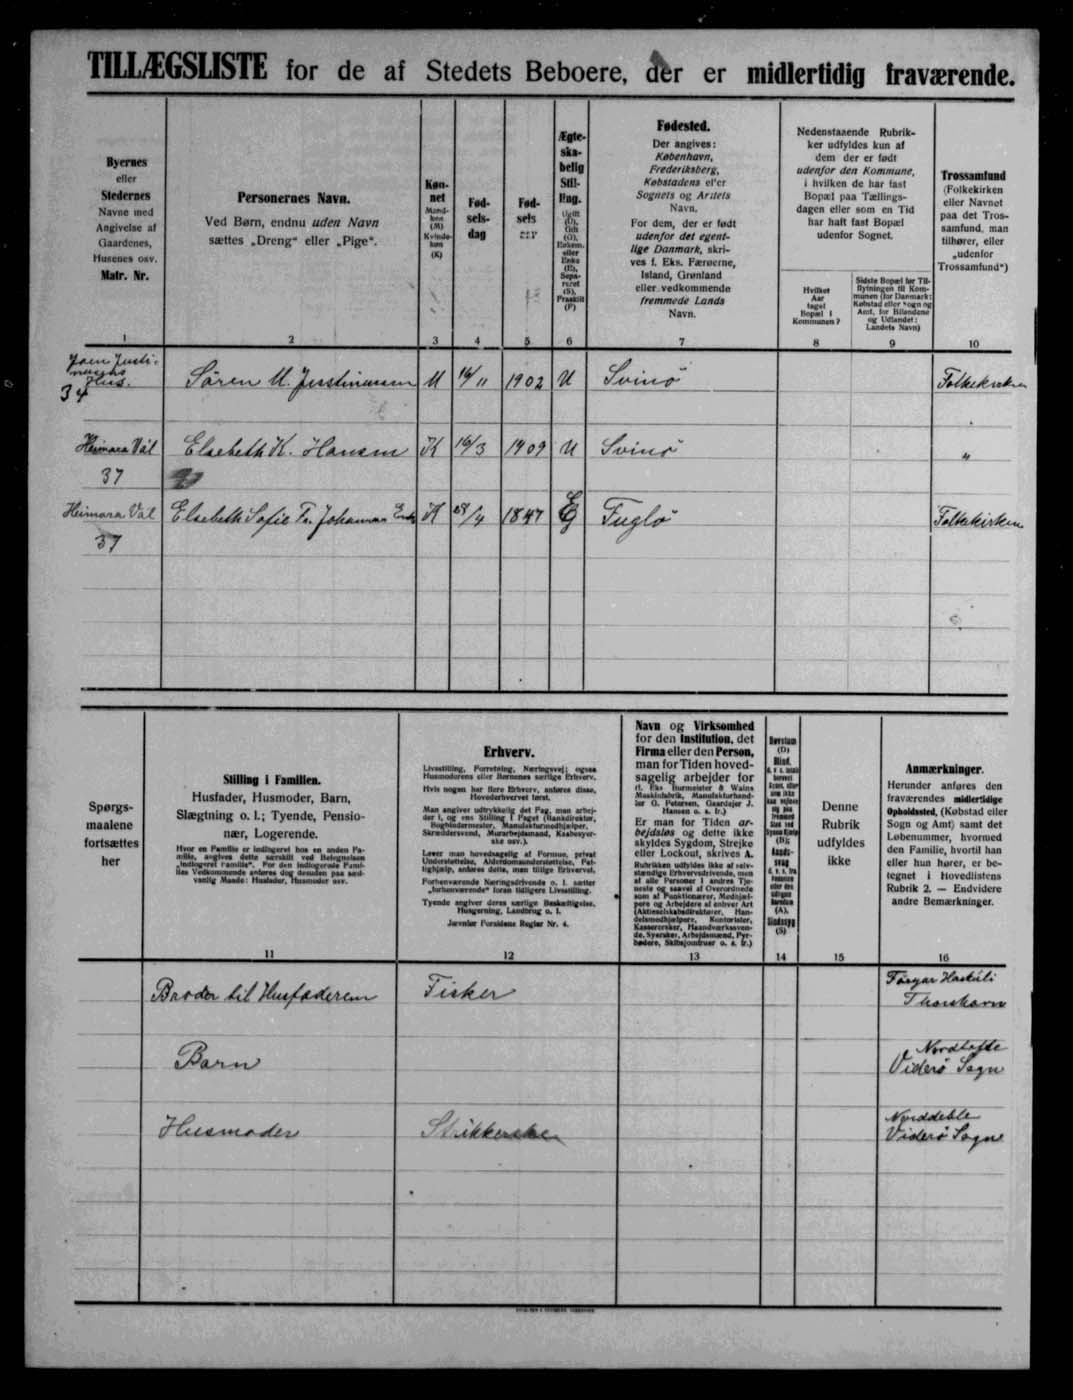 TILLÆGSLISTE for de af Stedets Beboere, der er midlertidig fraværende.
Byernes
eller
Stedernes
Navne med
Angivelse af
Gaardenes,
Husenes osv.
Matr. Nr.
1
Personernes Navn.
Ved Børn, endnu uden Navn
sættes „Dreng“ eller „Pige“.
2
Køn-
net
Mand-
køn
(M)
Kvinde-
køn
(K)
3
Fød-
sels-
dag
4
Fød-
sels
5
Ægte-
ska-
belig
Stil-
ling.
Ugift
(U),
Gift
(G),
Enkem.
eller
Enke
(E),
Sepa-
reret
(S),
Fraskilt
(F)
6
Fødested.
Der angives:
København,
Frederiksberg,
Købstadens eller
Sognets og Amtets
Navn.
For dem, der er født
udenfor det egent-
lige Danmark, skri-
ves f. Eks. Færøerne,
Island, Grønland
eller vedkommende
fremmede Lands
Navn.
7
Nedenstaaende Rubrik-
ker udfyldes kun af
dem der er født
udenfor den Kommune,
i hvilken de har fast
Bopæl paa Tællings-
dagen eller som en Tid
har haft fast Bopæl
udenfor Sognet.
Hvilket
Aar
taget
Bopæl i
Kommunen?
8
Sidste Bopæl før Til-
flytningen til Kom-
munen (for Danmark:
Købstad eller Sogn og
Amt, for Bilandene
og Udlandet:
Landets Navn)
9
Trossamfund
(Folkekirken
eller Navnet
paa det Tros-
samfund, man
tilhører, eller
„udenfor
Trossamfund“)
10
Hus.
34
Sören M. Justinussen M 16/11 1902 U Svinö Folkekirken
Heimara Vál Elsebeth K. Hansen K 16/3 1909 U Svinö "
37
Heimara Vál Elsebeth Sofie Fr. Johannes Enke K 28/4 1847 E Fuglö Folkekirken
37
Spørgs-
maalene
fortsættes
her
Stilling i Familien.
Husfader, Husmoder, Barn,
Slægtning o. l.; Tyende, Pensio-
nær, Logerende.
Hvor en Familie er indlogeret hos en anden Fa-
milie, angives dette særskilt ved Betegnelsen
„indlogeret Familie“. For den indlogerede Fami-
lies Vedkommende anføres dog desuden paa sæd-
vanlig Maade: Husfader, Husmoder osv.
11
Erhverv.
Livsstilling, Forretning, Næringsvej; ogsaa
Husmoderens eller Børnenes særlige Erhverv.
Hvis nogen har flere Erhverv, anføres disse,
Hovederhvervet først.
Man angiver udtrykkelig det Fag, man arbej-
der i, og ens Stilling i Faget (Bankdirektør,
Bogbindermester, Manufakturmedhjælper,
Skræddersvend, Murarbejdsmand, Kaabesyer-
ske osv.).
Lever man hovedsagelig af Formue, privat
Understøttelse, Alderdomsunderstøttelse, Fat-
tighjælp, anføres dette, men tillige Erhvervet.
Forhenværende Næringsdrivende o. l. sætter
„forhenværende“ foran tidligere Livsstilling.
Tyende angiver deres særlige Beskæftigelse,
Husgerning, Landbrug o. l.
Jævnfør Forsidens Regler Nr. 4.
12
Navn og Virksomhed
for den Institution, det
Firma eller den Person,
man for Tiden hoved-
sagelig arbejder for
(f. Eks Burmeister & Wains
Maskinfabrik, Manufakturhand-
ler O. Petersen, Gaardejer J.
Hansen o. s. fr.)
Er man for Tiden ar-
bejdsløs og dette ikke
skyldes Sygdom, Strejke
eller Lockout, skrives A.
Rubrikken udfyldes ikke af selv-
stændige Erhvervsdrivende, men
af alle Personer i andres Tje-
neste og saavel af Overordnede
som af Funktionærer, Medhjæl-
pere og Arbejdere af enhver Art
(Aktieselskabsdirektører, Han-
delsmedhjælpere, Kontorister,
Kassererske, Haandværkssven-
de, Syersker, Arbejdsmænd, Fyr-
bødere, Skibsjomfruer o. s. fr.)
13
Døvstum
(D)
Blind,
(B);
Aands-
svag
(A),
Sindssyg
(S)
14
Denne
Rubrik
udfyldes
ikke
15
Anmærkninger.
Herunder anføres den
fraværendes midlertidige
Opholdssted, (Købstad eller
Sogn og Amt) samt det
Løbenummer, hvormed
den Familie, hvortil han
eller hun hører, er be-
tegnet i Hovedlistens
Rubrik 2. — Endvidere
andre Bemærkninger.
16
Broder til Husfaderen Fisker
Thorshavn
Barn
Viderö Sogn
Husmoder Strikkerske
Viderö Sogn